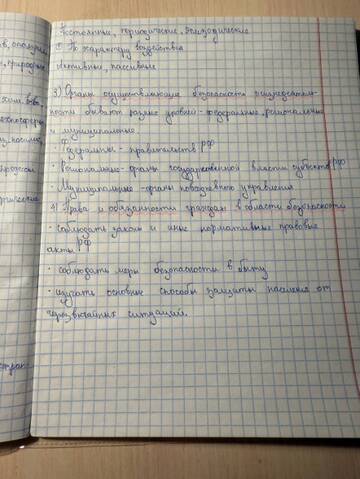 постоянные, периодические, эпизодические
По характеру воздействия
активные, пассивные
3) Органы осуществляющие безопасность
бывают разных уровней - федеральные, региональные
и муниципальные
Федеральные - правительство РФ
· Региональные - органы государственной власти субъектов РФ
· Муниципальные - органы повседневного управления
4) Права и обязанности граждан в области безопасности
· соблюдать законы и иные нормативные правовые
акты РФ
· соблюдать меры безопасности в быту
· изучать основные способы защиты населения от
чрезвычайных ситуаций.